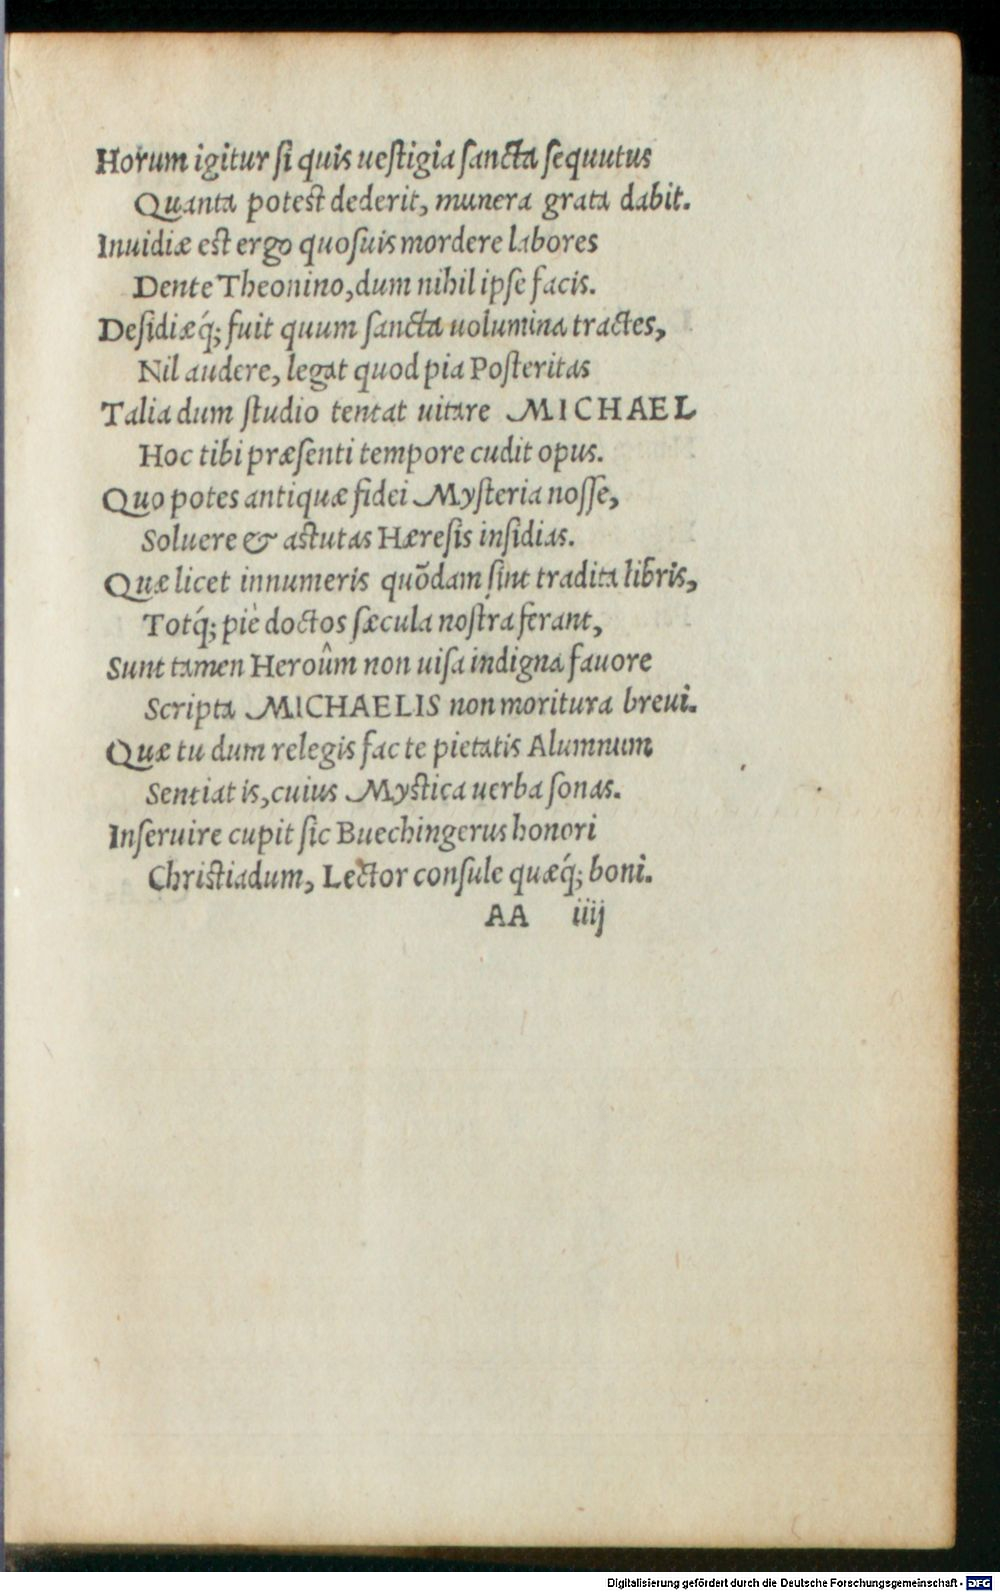 Horum igitur ſi quis ueſtigia ſancta ſequutus
Quanta poteſt dederit, munera grata dabit.
Inuidiæ eſt ergo quoſuis mordere labores
Dente Theonino, dum nihil ipſe facis.
Deſidiæq́; fuit quum ſancta uolumina tractes,
Nil audere, legat quod pia Poſteritas
Talia dum ſtudio tentat uitare MICHAEL
Hoc tibi præſenti tempore cudit opus.
Quo potes antiquæ fidei Myſteria noſſe,
Soluere & aſtutas Hæreſis inſidias.
Quæ licet innumeris quõdam ſint tradita libris,
Totq́; piè doctos ſæcula noſtra ferant,
Sunt tamen Heroûm non uiſa indigna fauore
Scripta MICHAELIS non moritura breui.
Quæ tu dum relegis fac te pietatis Alumnum
Sentiat is, cuius Myſtica uerba ſonas.
Inſeruire cupit ſic Buechingerus honori
Chriſtiadum, Lector conſule quæq́; boni.
AA iiij
Digitalisierung gefördert durch die Deutsche Forschungsgemeinschaft - DFG